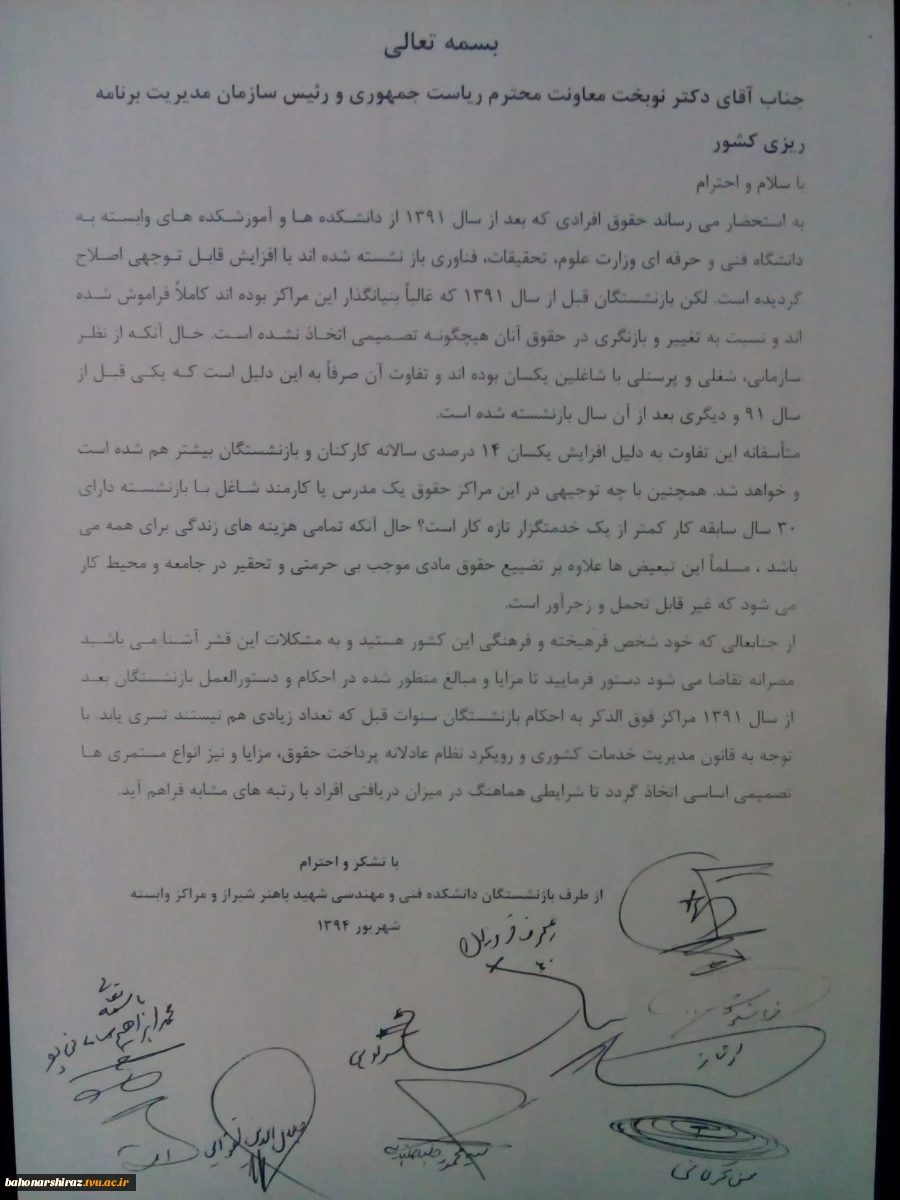 بسمه تعالی
جناب آقای دکتر نوبخت معاونت محترم ریاست جمهوری و رئیس سازمان مدیریت برنامه
ریزی کشور
با سلام و احترام
به استحضار می رساند حقوق افرادی که بعد از سال ۱۳۹۱ از دانشکده ها و آموزشکده های وابسته به
دانشگاه فنی و حرفه ای وزارت علوم، تحقیقات، فناوری باز نشسته شده اند با افزایش قابل توجهی اصلاح
گردیده است. لکن بازنشستگان قبل از سال ۱۳۹۱ که غالباً بنیانگذار این مراکز بوده اند کاملاً فراموش شده
اند و نسبت به تغییر و بازنگری در حقوق آنان هیچگونه تصمیمی اتخاذ نشده است. حال آنکه از نظر
سازمانی، شغلی و پرسنلی با شاغلین یکسان بوده اند و تفاوت آن صرفاً به این دلیل است که یکی قبل از
سال ۹۱ و دیگری بعد از آن سال بازنشسته شده است.
متأسفانه این تفاوت به دلیل افزایش یکسان ۱۴ درصدی سالانه کارکنان و بازنشستگان بیشتر هم شده است
و خواهد شد. همچنین با چه توجیهی در این مراکز حقوق یک مدرس یا کارمند شاغل با بازنشسته دارای
۳۰ سال سابقه کار کمتر از یک خدمتگزار تازه کار است؟ حال آنکه تمامی هزینه های زندگی برای همه می
باشد ، مسلماً این تبعیض ها علاوه بر تضییع حقوق مادی موجب بی حرمتی و تحقیر در جامعه و محیط کار
می شود که غیر قابل تحمل و زجرآور است.
از جنابعالی که خود شخص فرهیخته و فرهنگی این کشور هستید و به مشکلات این قشر آشنا می باشید
مصرانه تقاضا می شود دستور فرمایید تا مزایا و مبالغ منظور شده در احکام و دستورالعمل بازنشستگان بعد
از سال ۱۳۹۱ مراکز فوق الذکر به احکام بازنشستگان سنوات قبل که تعداد زیادی هم نیستند تسری یابد. با
توجه به قانون مدیریت خدمات کشوری و رویکرد نظام عادلانه پرداخت حقوق، مزایا و نیز انواع مستمری ها
تصمیمی اساسی اتخاذ گردد تا شرایطی هماهنگ در میزان دریافتی افراد با رتبه های مشابه فراهم آید.
با تشکر و احترام
از طرف بازنشستگان دانشکده فنی و مهندسی شهید باهنر شیراز و مراکز وابسته
شهریور ۱۳۹۴
باسمه تعالی
محمد ابراهیم
جلال الدین
bahonarshiraz.tvu.ac.ir